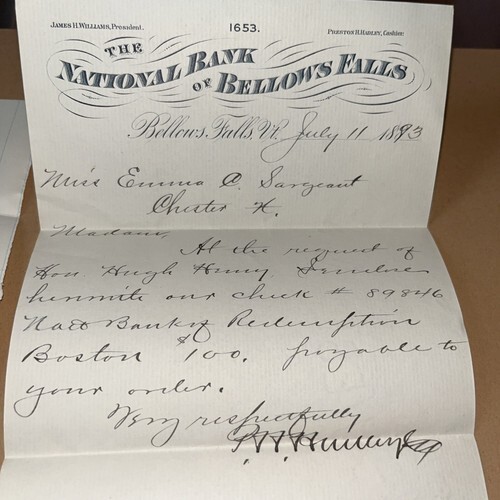 JAMES H. WILLIAMS, President.
1653.
PRESTON H. HADLEY, Cashier.
THE
NATIONAL BANK
OF BELLOWS FALLS
Bellows Falls, Vt. July 11 1893
Miss Emma C. Sargeant
Chester
Madam,
At the request of
Hon Hugh Henry
herewith our check # 89846
Natl Bank of Redemption
Boston $100. payable to
your order.
Very respectfully